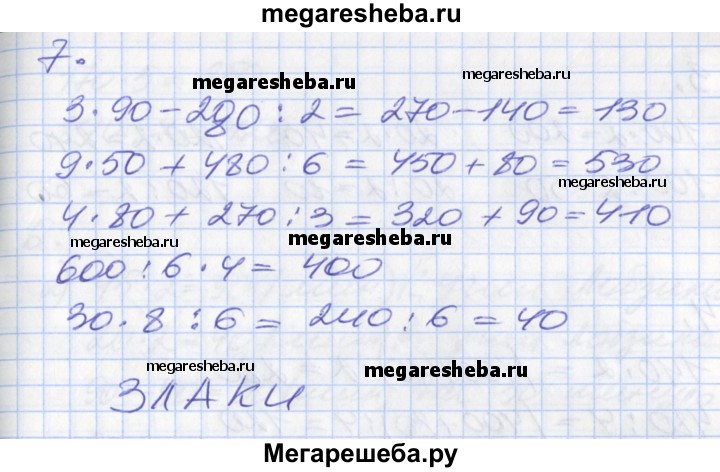 megaresheba.ru
7.
megaresheba.ru
megaresheba.ru
3·90-280:2=270-140=130
9·50+480:6=450+80=530
megaresheba.ru
4·80+270:3=320+90=410
megaresheba.ru
megaresheba.ru
600:6·4=400
30·8:6=240:6=40
megaresheba.ru
megaresheba.ru
ЗЛАКИ
Мегарешеба.ру